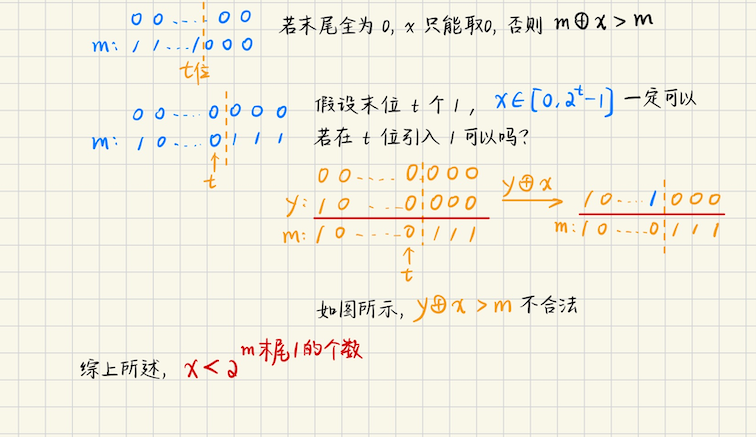 0 0 .... 0 0
m: 1 1 ... 1 0 0 0
t位
若末尾全为 0, x 只能取0, 否则 m⊕x > m
0 0 ..... 0 0 0 0
m: 1 0 .... 0 1 1 1
↑
t
假设末位 t 个 1, x∈[0, 2^t-1] 一定可以
若在 t 位引入 1 可以吗?
0 0 ..... 0 0 0 0
y: 1 0 ..... 0 0 0 0
m: 1 0 ..... 0 1 1 1
↑
t
y⊕x
1 0 ... 1 0 0 0
m: 1 0 .... 0 1 1 1
如图所示, y⊕x > m 不合法
综上所述, x < 2^m末尾1的个数